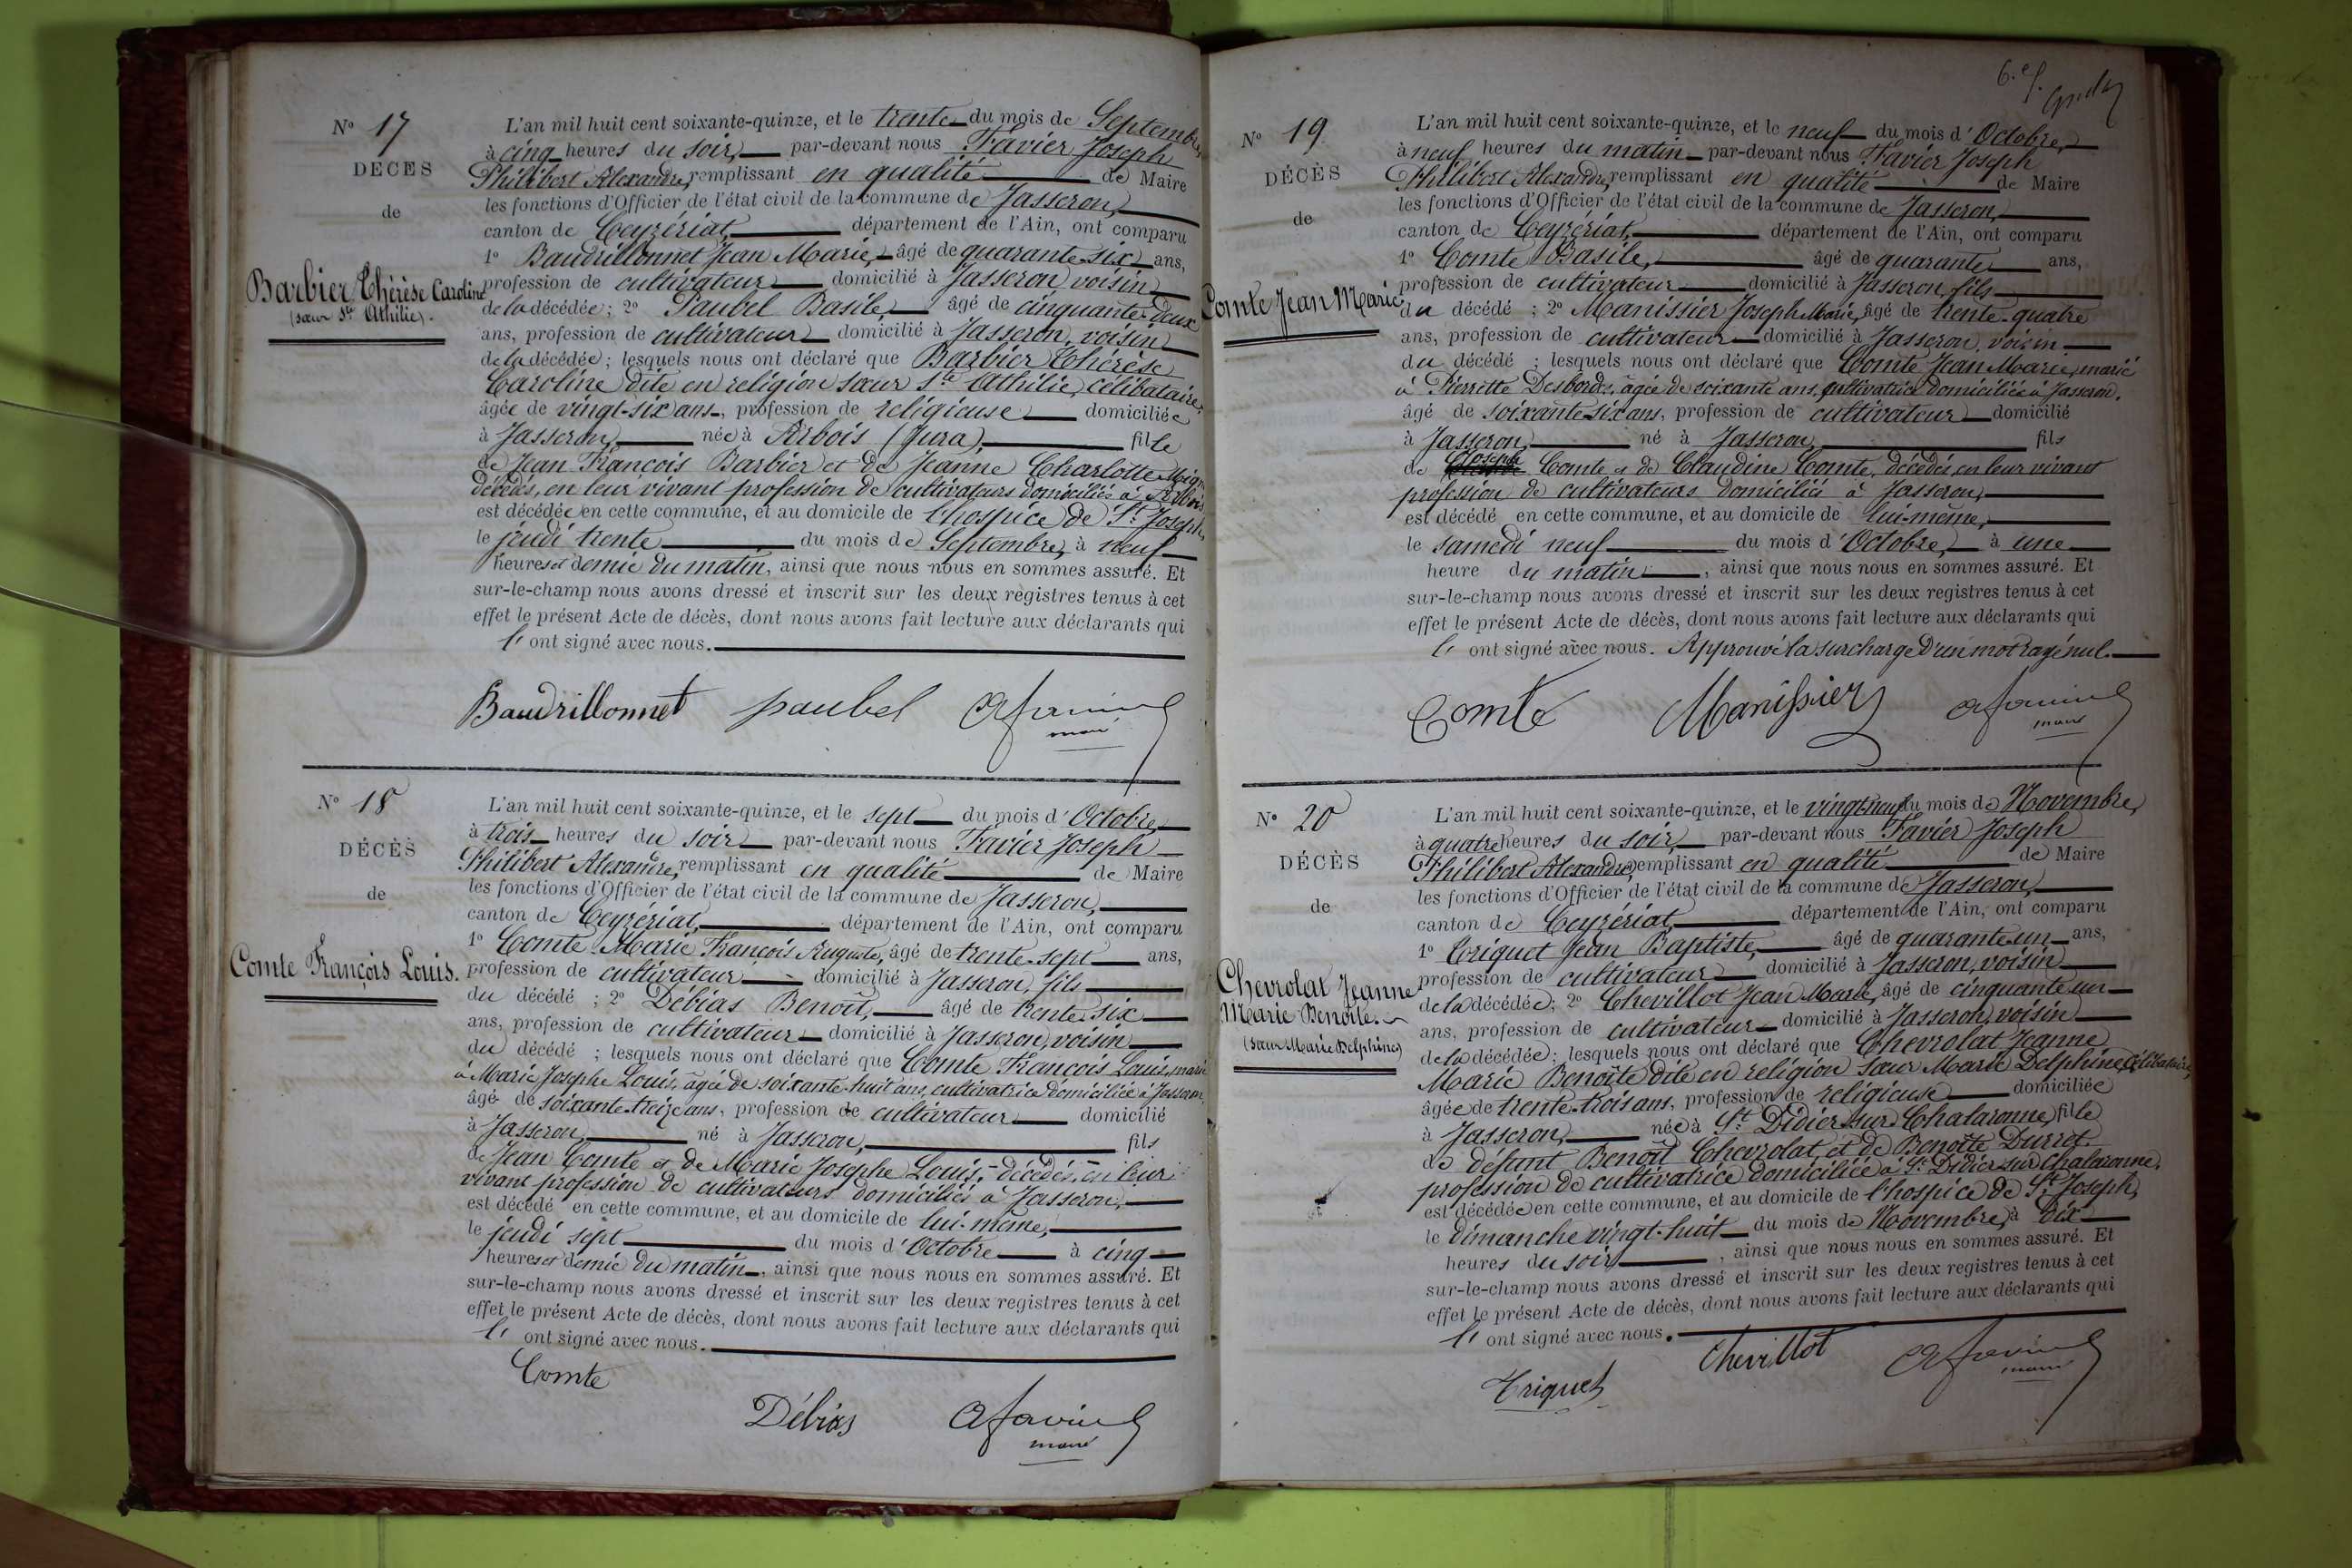 N° 17
DÉCÈS
de
Barbier Thérèse Caroline
(sœur Ste Athilie).
L'an mil huit cent soixante-quinze, et le trente du mois de Septembre,
à cinq heures du soir, par-devant nous Favier Joseph
Philibert Alexandre, remplissant en qualité de Maire
les fonctions d'Officier de l'état civil de la commune de Jasseron,
canton de Ceyzériat, département de l'Ain, ont comparu
1° Baudrillonnet Jean Marie, âgé de quarante-six ans,
profession de cultivateur domicilié à Jasseron, voisin
de la décédée; 2° Paubel Basile, âgé de cinquante-deux
ans, profession de cultivateur domicilié à Jasseron, voisin
de la décédée; lesquels nous ont déclaré que Barbier Thérèse
Caroline dite en religion sœur Ste Athilie, célibataire,
âgée de vingt-six ans, profession de religieuse domiciliée
à Jasseron, née à Arbois (Jura), fille
de Jean François Barbier et de Jeanne Charlotte
décédés, en leur vivant profession de cultivateurs domiciliés à Arbois
est décédée en cette commune, et au domicile de l'hospice de St Joseph,
le jeudi trente du mois de Septembre, à neuf
heures et demie du matin, ainsi que nous nous en sommes assuré. Et
sur-le-champ nous avons dressé et inscrit sur les deux registres tenus à cet
effet le présent Acte de décès, dont nous avons fait lecture aux déclarants qui
l' ont signé avec nous.
Baudrillonnet paubel afavier
maire
N° 18
DÉCÈS
de
Comte François Louis.
L'an mil huit cent soixante-quinze, et le sept du mois d'Octobre,
à trois heures du soir, par-devant nous Favier Joseph
Philibert Alexandre, remplissant en qualité de Maire
les fonctions d'Officier de l'état civil de la commune de Jasseron,
canton de Ceyzériat, département de l'Ain, ont comparu
1° Comte Marie François Auguste, âgé de trente-sept ans,
profession de cultivateur domicilié à Jasseron, fils
du décédé ; 2° Débias Benoît, âgé de trente-six
ans, profession de cultivateur domicilié à Jasseron, voisin
du décédé ; lesquels nous ont déclaré que Comte François Louis, marié
à Marie Josephe Louis, âgée de soixante-huit ans, cultivatrice domiciliée à Jasseron,
âgé de soixante-treize ans, profession de cultivateur domicilié
à Jasseron, né à Jasseron, fils
de Jean Comte et de Marie Josephe Louis, décédés, en leur
vivant profession de cultivateurs domiciliés à Jasseron,
est décédé en cette commune, et au domicile de lui-même,
le jeudi sept du mois d'Octobre à cinq
heures et demie du matin, ainsi que nous nous en sommes assuré. Et
sur-le-champ nous avons dressé et inscrit sur les deux registres tenus à cet
effet le présent Acte de décès, dont nous avons fait lecture aux déclarants qui
l' ont signé avec nous.
Comte
Débias afavier
maire
6. ef.
N° 19
DÉCÈS
de
Comte Jean Marie
L'an mil huit cent soixante-quinze, et le neuf du mois d'Octobre,
à neuf heures du matin par-devant nous Favier Joseph
Philibert Alexandre, remplissant en qualité de Maire
les fonctions d'Officier de l'état civil de la commune de Jasseron,
canton de Ceyzériat, département de l'Ain, ont comparu
1° Comte Basile, âgé de quarante ans,
profession de cultivateur domicilié à Jasseron, fils
du décédé ; 2° Manissier Joseph Marie, âgé de trente-quatre
ans, profession de cultivateur domicilié à Jasseron, voisin
du décédé ; lesquels nous ont déclaré que Comte Jean Marie, marié
à Pierrette Desbordes, âgée de soixante ans, cultivatrice domiciliée à Jasseron,
âgé de soixante-six ans, profession de cultivateur domicilié
à Jasseron, né à Jasseron, fils
de Joseph Comte et de Claudine Comte, décédés, en leur vivant
profession de cultivateurs domiciliés à Jasseron,
est décédé en cette commune, et au domicile de lui-même,
le samedi neuf du mois d'Octobre, à une
heure du matin, ainsi que nous nous en sommes assuré. Et
sur-le-champ nous avons dressé et inscrit sur les deux registres tenus à cet
effet le présent Acte de décès, dont nous avons fait lecture aux déclarants qui
l' ont signé avec nous. Approuvé la surcharge d'un mot rayé nul.
Comte Manissier afavier
maire
N° 20
DÉCÈS
de
Chevrolat Jeanne
Marie Benoîte.
(sœur Marie Delphine)
L'an mil huit cent soixante-quinze, et le vingt-neuf du mois de Novembre,
à quatre heures du soir, par-devant nous Favier Joseph
Philibert Alexandre, remplissant en qualité de Maire
les fonctions d'Officier de l'état civil de la commune de Jasseron,
canton de Ceyzériat, département de l'Ain, ont comparu
1° Criquet Jean Baptiste, âgé de quarante-un ans,
profession de cultivateur domicilié à Jasseron, voisin
de la décédée; 2° Chevillot Jean Marie, âgé de cinquante-un
ans, profession de cultivateur domicilié à Jasseron, voisin
de la décédée; lesquels nous ont déclaré que Chevrolat Jeanne
Marie Benoîte dite en religion sœur Marie Delphine, célibataire,
âgée de trente-trois ans, profession de religieuse domiciliée
à Jasseron, née à St Didier-sur-Chalaronne, fille
de défunt Benoît Chevrolat, et de Benoîte Durret
profession de cultivatrice domiciliée à St Didier-sur-Chalaronne,
est décédée en cette commune, et au domicile de l'hospice de St Joseph,
le dimanche vingt-huit du mois de Novembre, à dix
heures du soir, ainsi que nous nous en sommes assuré. Et
sur-le-champ nous avons dressé et inscrit sur les deux registres tenus à cet
effet le présent Acte de décès, dont nous avons fait lecture aux déclarants qui
l' ont signé avec nous.
Criquet Chevillot afavier
maire